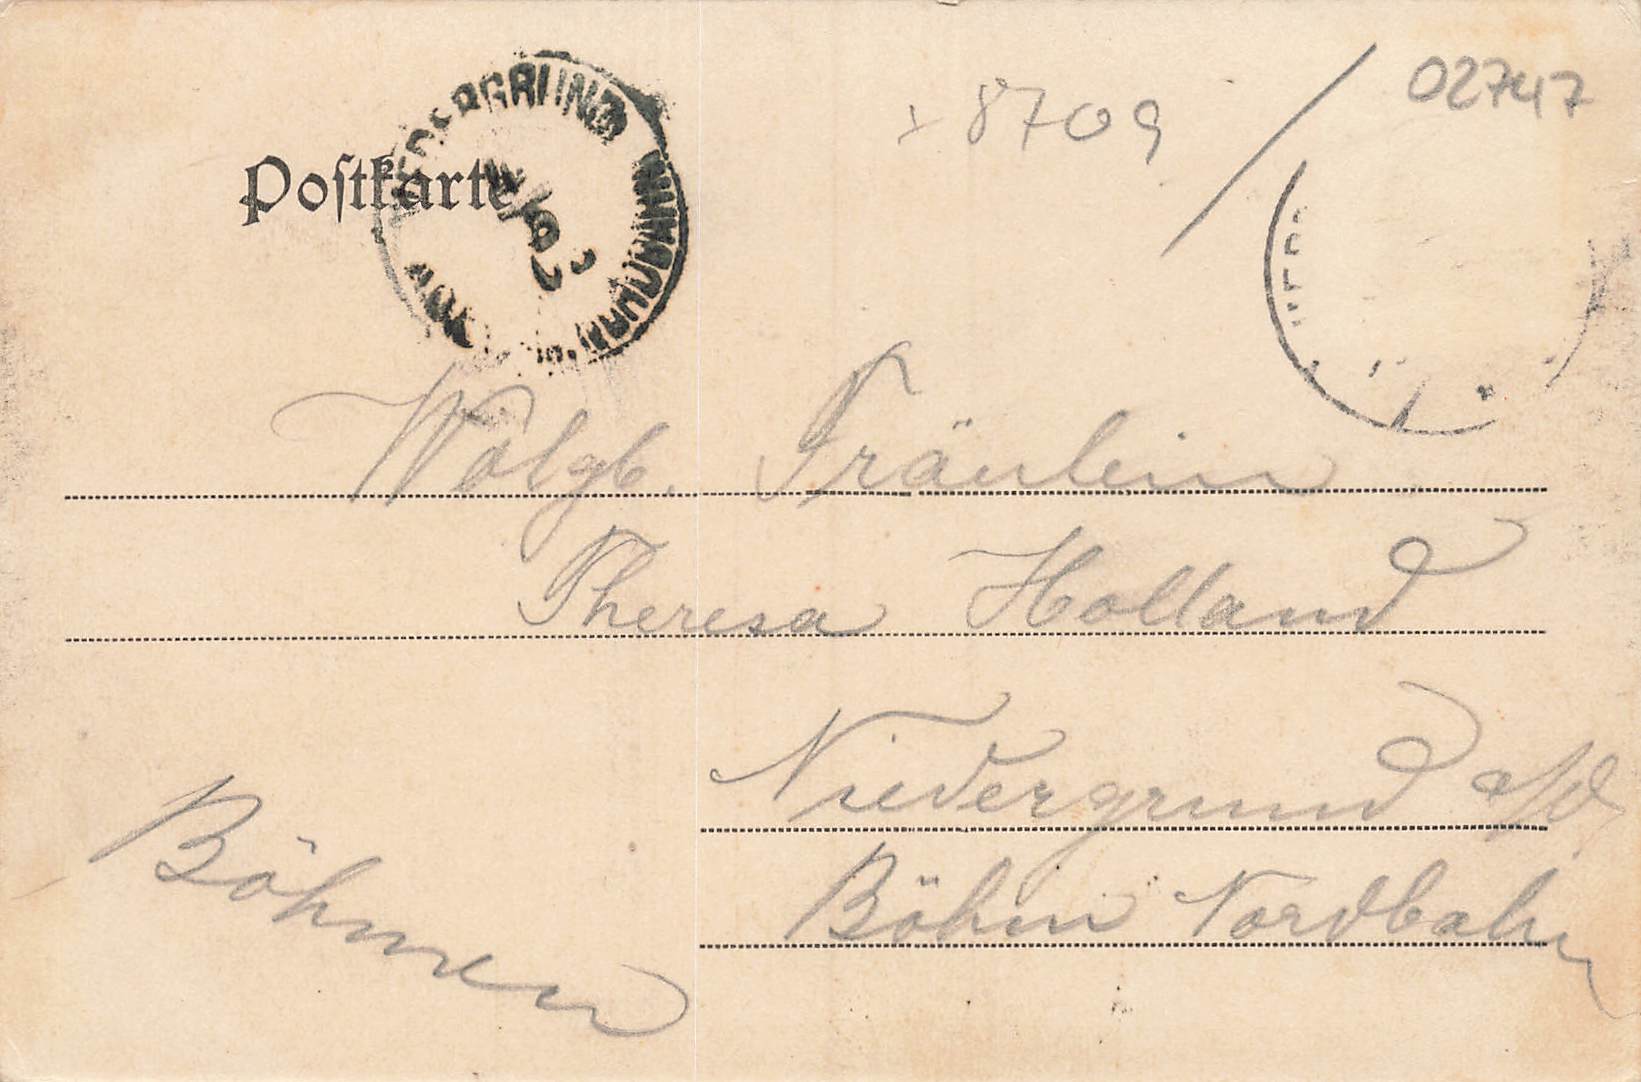 02747
x 8709
Postkarte
Wolgb. Fräulein
Theresa Holland
Niedergrund a/d
Böhm Nordbahn
Böhmen